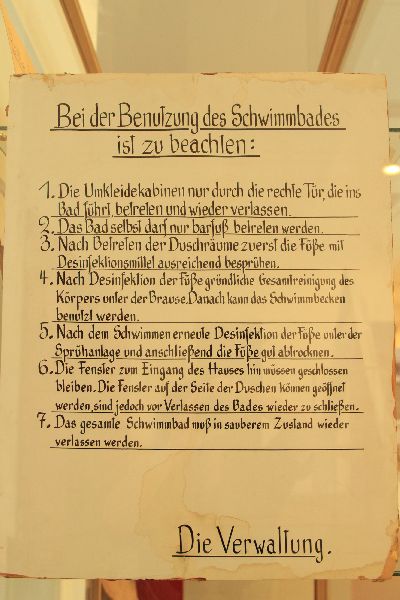 Bei der Benutzung des Schwimmbades
ist zu beachten:
1. Die Umkleidekabinen nur durch die rechte Tür, die ins
Bad führt, betreten und wieder verlassen.
2. Das Bad selbst darf nur barfuß betreten werden.
3. Nach Betreten der Duschräume zuerst die Füße mit
Desinfektionsmittel ausreichend besprühen.
4. Nach Desinfektion der Füße gründliche Gesamtreinigung des
Körpers unter der Brause. Danach kann das Schwimmbecken
benutzt werden.
5. Nach dem Schwimmen erneute Desinfektion der Füße unter der
Sprühanlage und anschließend die Füße gut abtrocknen.
6. Die Fenster zum Eingang des Hauses hin müssen geschlossen
bleiben. Die Fenster auf der Seite der Duschen können geöffnet
werden, sind jedoch vor Verlassen des Bades wieder zu schließen.
7. Das gesamte Schwimmbad muß in sauberem Zustand wieder
verlassen werden.
Die Verwaltung.